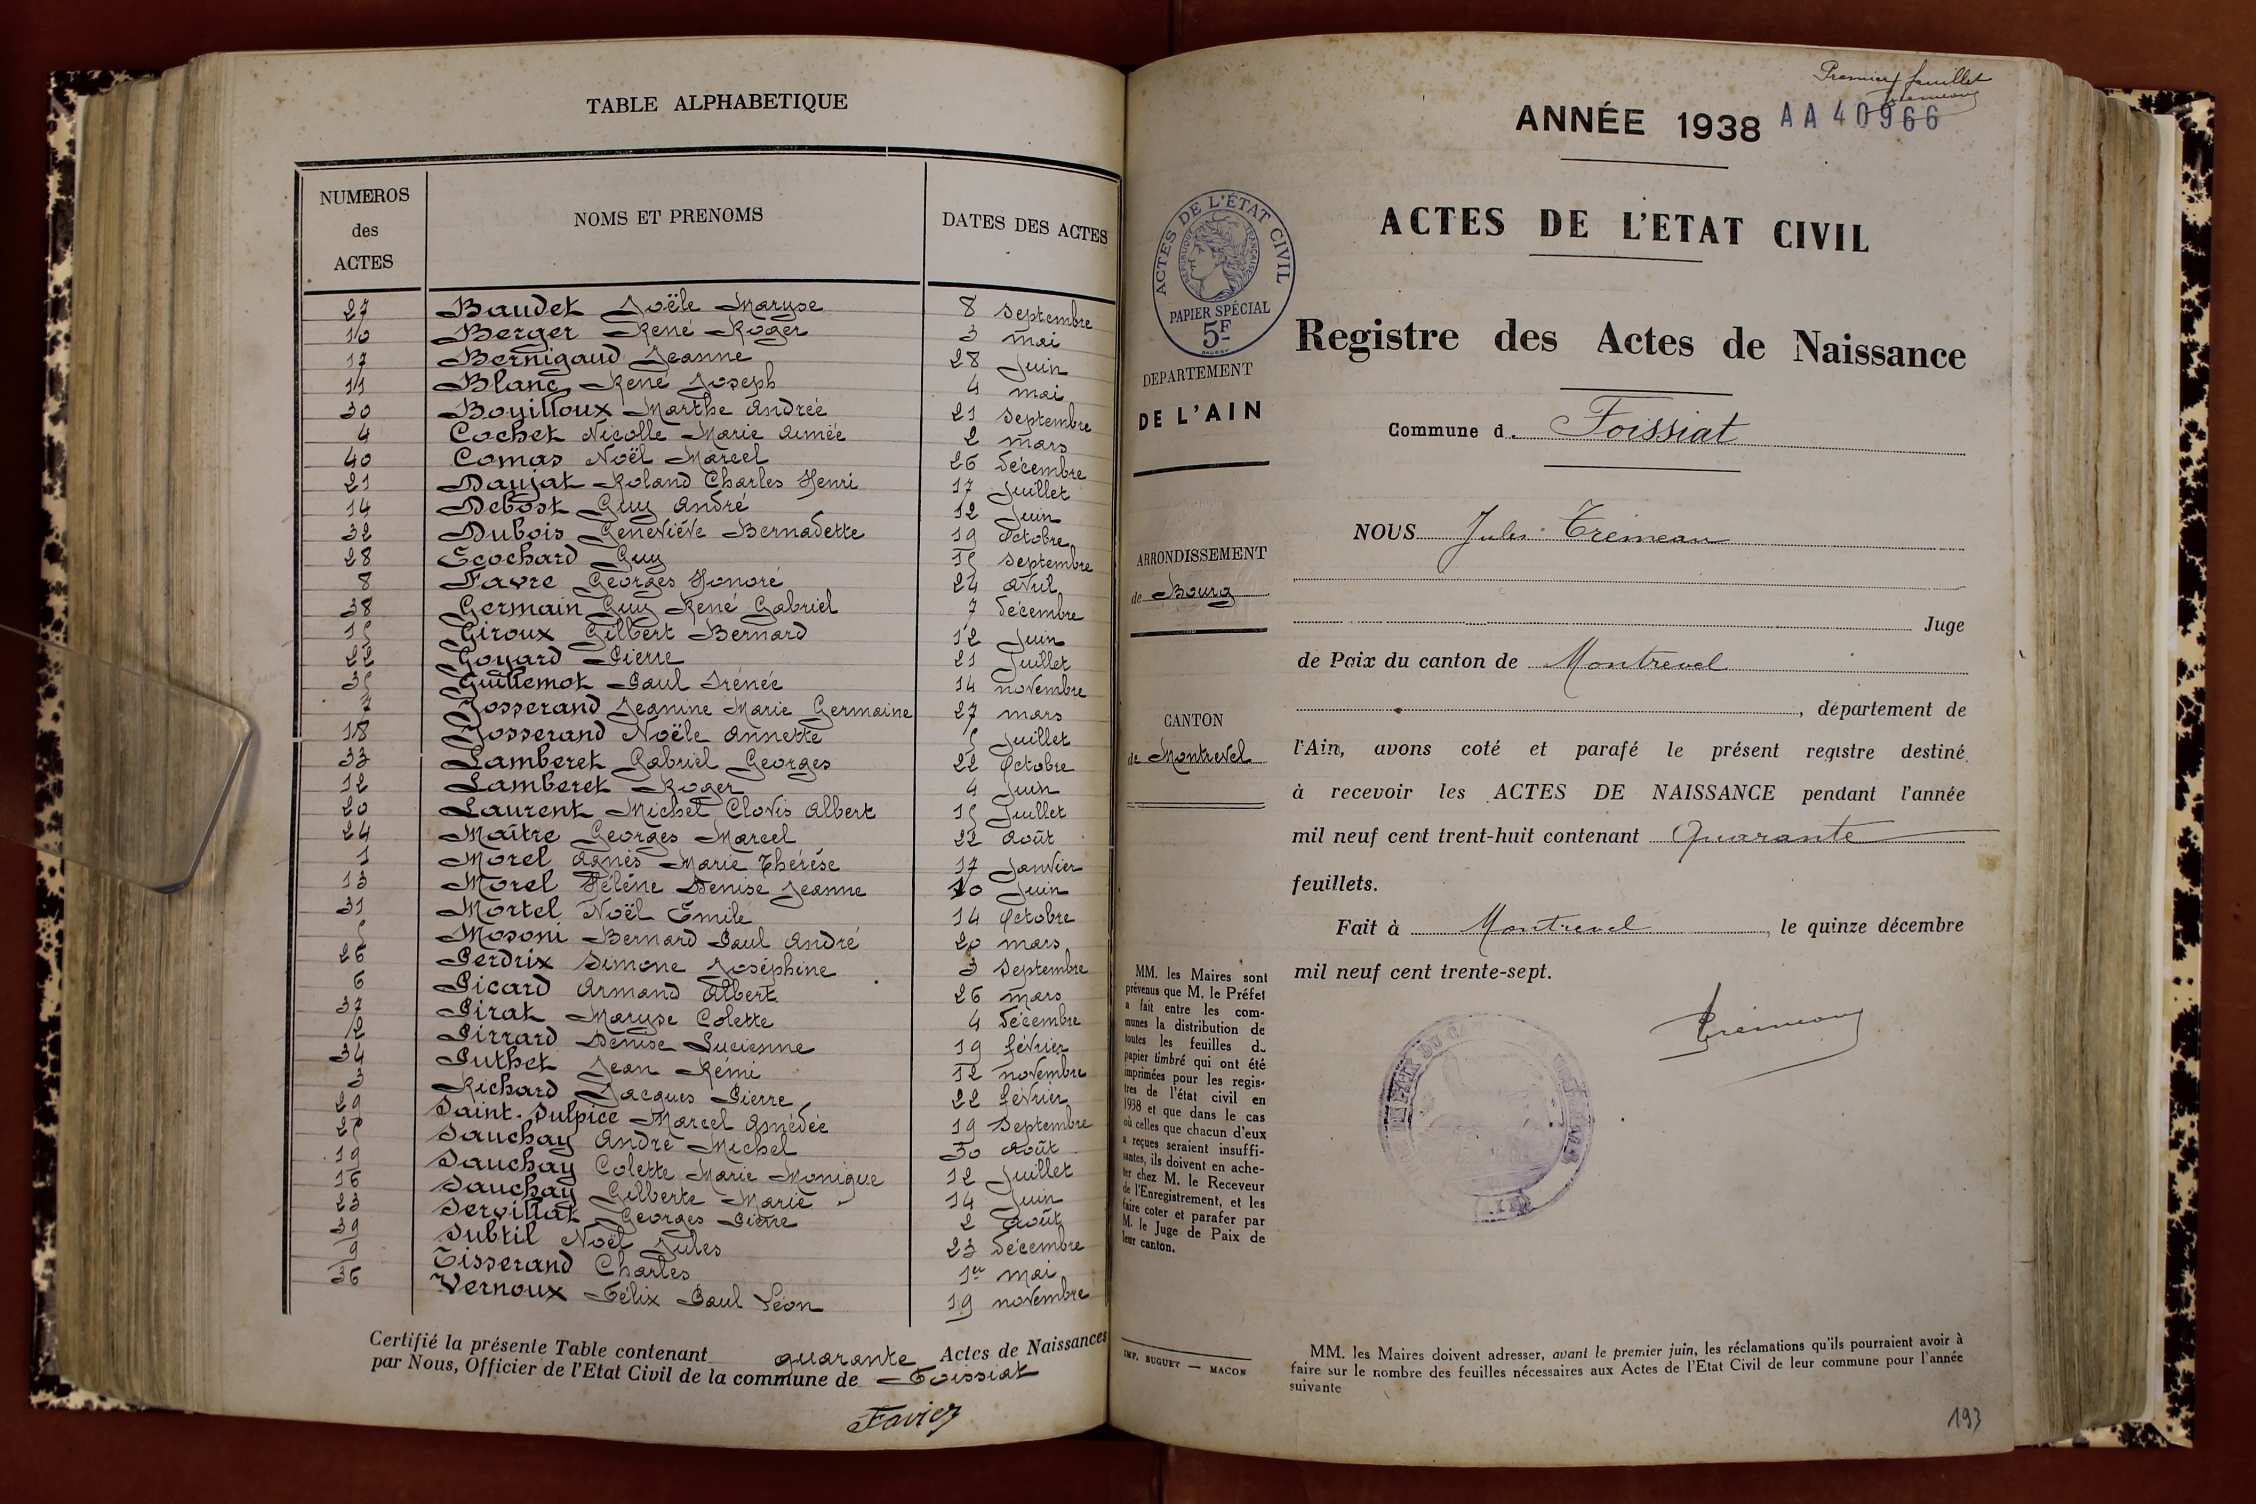 TABLE ALPHABETIQUE
NUMEROS
des
ACTES
NOMS ET PRENOMS
DATES DES ACTES
27 Baudet Joële Maryse 8 septembre
10 Berger René Roger 3 mai
17 Bernigaud Jeanne 28 Juin
11 Blanc René Joseph 4 mai
30 Bouilloux Marthe Andrée 21 septembre
4 Cochet Nicolle Marie Aimée 2 mars
40 Comas Noël Marcel 26 décembre
21 Daujat Roland Charles Henri 17 Juillet
14 Debost Guy André 12 Juin
32 Dubois Geneviève Bernadette 19 Octobre
28 Ecochard Guy 15 septembre
8 Favre Georges Honoré 24 avril
38 Germain Guy René Gabriel 7 décembre
15 Giroux Gilbert Bernard 12 Juin
22 Goyard Pierre 21 Juillet
35 Guillemot Paul Irénée 14 novembre
7 Josserand Jeanine Marie Germaine 27 mars
18 Josserand Noële Annette 5 Juillet
33 Lamberet Gabriel Georges 22 Octobre
12 Lamberet Roger 4 Juin
20 Laurent Michel Clovis Albert 15 Juillet
24 Maître Georges Marcel 22 Août
1 Morel Agnès Marie Thérèse 17 Janvier
13 Morel Hélène Denise Jeanne 10 Juin
31 Mortel Noël Emile 14 Octobre
5 Mosoni Bernard Paul André 20 mars
26 Perdrix Simone Joséphine 3 Septembre
6 Picard Armand Albert 26 mars
37 Pirat Maryse Colette 4 décembre
2 Pirrard Denise Lucienne 19 février
34 Puthet Jean Rémi 12 novembre
3 Richard Jacques Pierre 22 février
29 Saint-Sulpice Marcel Amédée 19 Septembre
25 Sauchay André Michel 30 Août
19 Sauchay Colette Marie Monique 12 Juillet
16 Sauchay Gilberte Marie 14 Juin
23 Servillat Georges Pierre 2 Août
39 Subtil Noël Jules 23 décembre
9 Tisserand Charles 1er mai
36 Vernoux Félix Paul Léon 19 novembre
Certifié la présente Table contenant quarante Actes de Naissances
par Nous, Officier de l'Etat Civil de la commune de Foissiat
Favier
Premier feuillet
Trémeau
ANNÉE 1938 AA 40966
ACTES DE L'ÉTAT CIVIL
RÉPUBLIQUE FRANÇAISE
PAPIER SPÉCIAL
5F
DEPARTEMENT
DE L'AIN
ARRONDISSEMENT
de Bourg
CANTON
de Montrevel
MM. les Maires sont
prévenus que M. le Préfet
a fait entre les com-
munes la distribution de
toutes les feuilles de
papier timbré qui ont été
imprimées pour les regis-
tres de l'état civil en
1938 et que dans le cas
où celles que chacun d'eux
a reçues seraient insuffi-
santes, ils doivent en ache-
ter chez M. le Receveur
de l'Enregistrement, et les
faire coter et parafer par
M. le Juge de Paix de
leur canton.
IMP. BUGUET — MACON
ACTES DE L'ETAT CIVIL
Registre des Actes de Naissance
Commune d. Foissiat
NOUS Jules Trémeau
Juge
de Paix du canton de Montrevel
, département de
l'Ain, avons coté et parafé le présent registre destiné
à recevoir les ACTES DE NAISSANCE pendant l'année
mil neuf cent trent-huit contenant Quarante
feuillets.
Fait à Montrevel, le quinze décembre
mil neuf cent trente-sept.
Trémeau
MM. les Maires doivent adresser, avant le premier juin, les réclamations qu'ils pourraient avoir à
faire sur le nombre des feuilles nécessaires aux Actes de l'Etat Civil de leur commune pour l'année
suivante
193